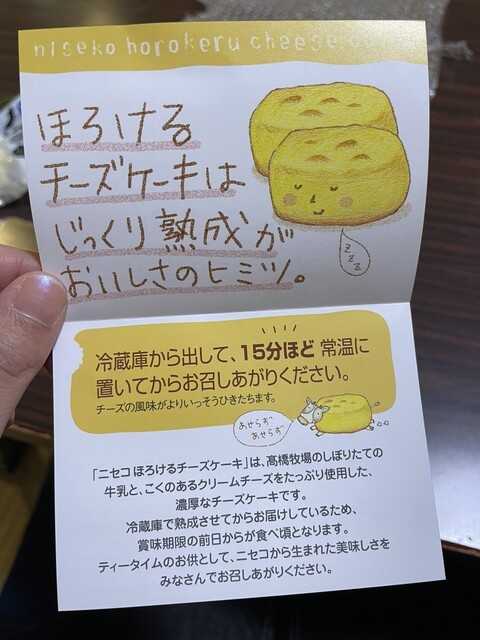 niseko horokeru cheese cake
ほろける
チーズケーキは
じっくり熟成が
おいしさのヒミツ。
zzz
冷蔵庫から出して、15分ほど常温に
置いてからお召しあがりください。
チーズの風味がよりいっそうひきたちます。
あせらず
あせらず
「ニセコ ほろけるチーズケーキ」は、髙橋牧場のしぼりたての
牛乳と、こくのあるクリームチーズをたっぷり使用した、
濃厚なチーズケーキです。
冷蔵庫で熟成させてからお届けしているため、
賞味期限の前日からが食べ頃となります。
ティータイムのお供として、ニセコから生まれた美味しさを
みなさんでお召しあがりください。